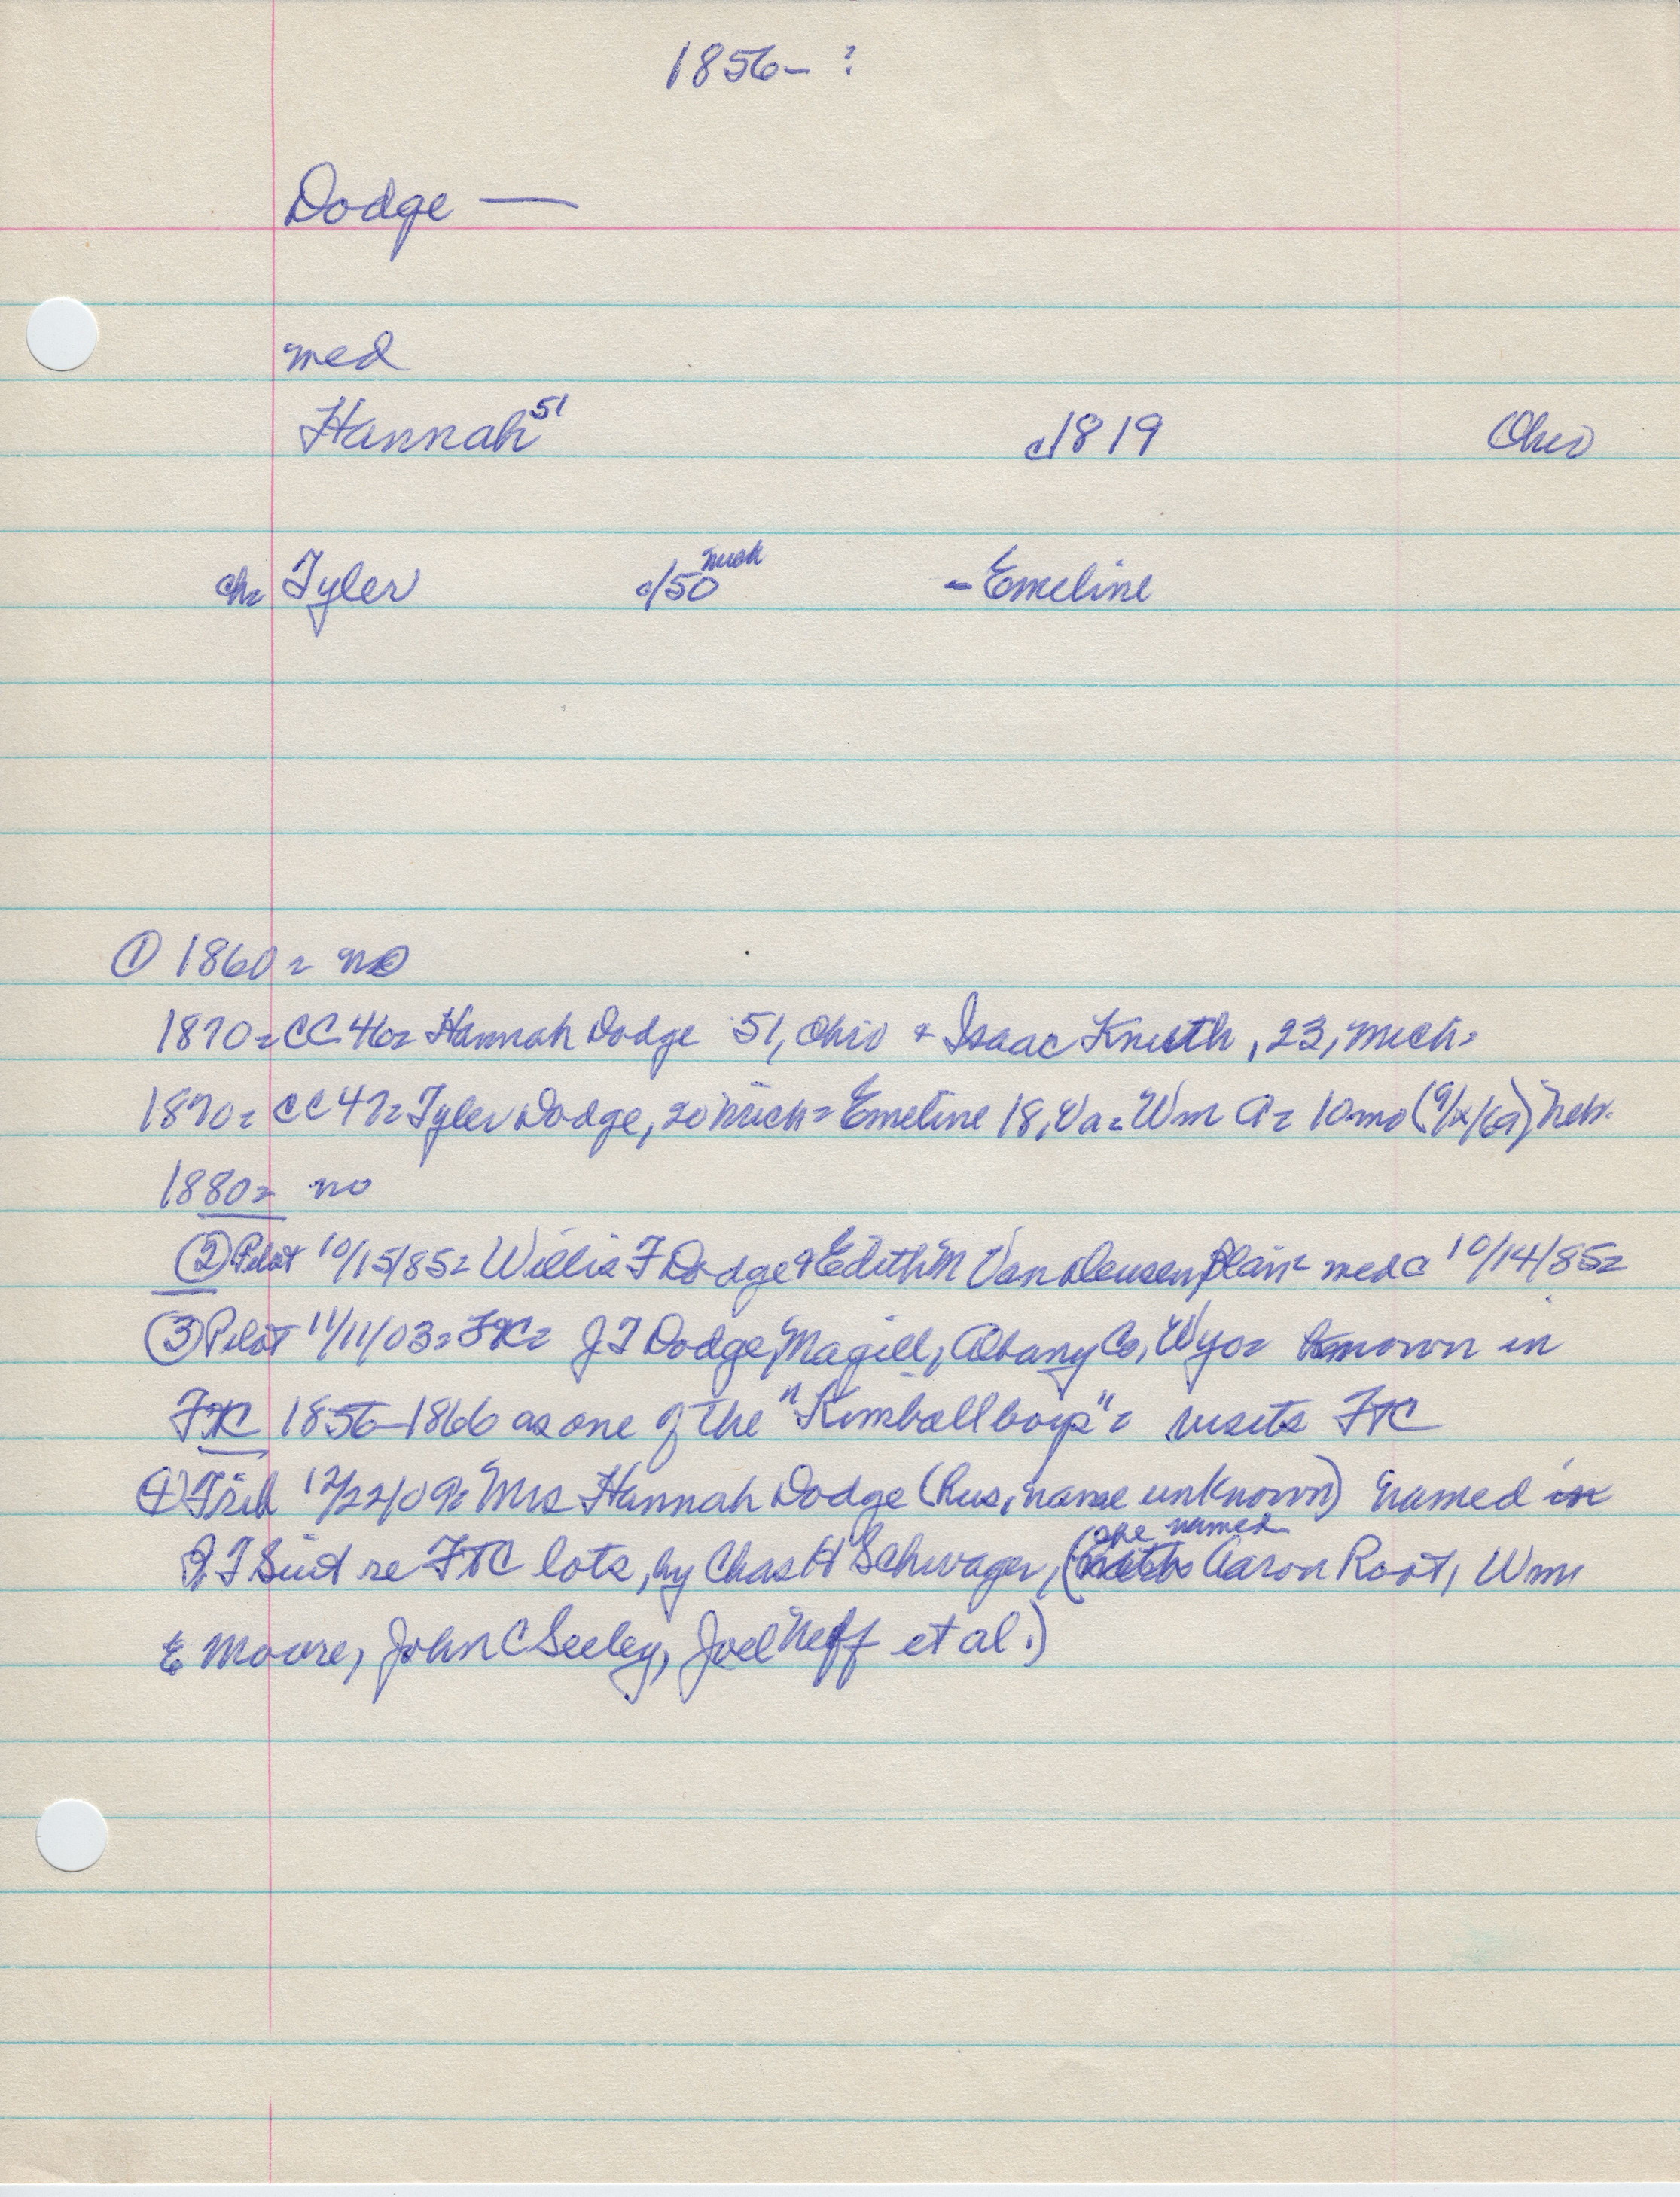 1856- ?
Dodge —
med
Hannah 51 c/1819 Ohio
ch= Tyler c/50 Mich - Emeline
① 1860 = no
1870 = CC 46 = Hannah Dodge 51, Ohio + Isaac Knuth, 23, Mich =
1870 = CC 47 = Tyler Dodge, 20 Mich = Emeline 18, Va = Wm A = 10 mo (9/x/69) Nebr.
1880 = no
② Pilot 10/15/85 = Willis F Dodge & Edith M Van Deusen, Blair = med c 10/14/85 =
③ Pilot 11/11/03 = FtC = J T Dodge, Magill, Albany Co, Wyo = known in
FtC 1856-1866 as one of the "Kimball boys" = visits FtC
④ Trib 12/22/09 = Mrs Hannah Dodge (hus, name unknown) named in
Suit re FtC lots, by Chas H Schwager, (she named Aaron Root, Wm
E Moore, John C Seeley, Joel Neff et al.)